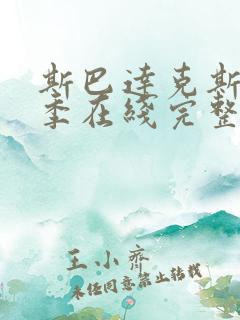 斯巴达克斯
季在线完整
王小齐
未经同意禁止转载